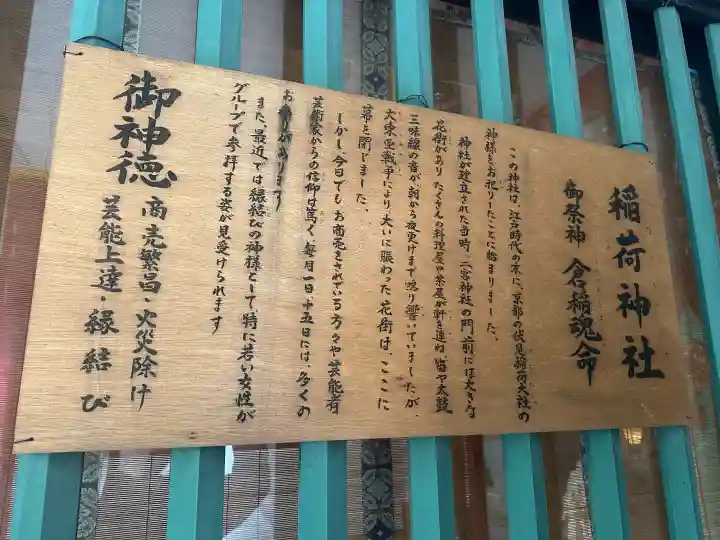 稲荷神社
御祭神 倉稲魂命
この神社は、江戸時代の末に、京都の伏見稲荷大社の
神様をお祀りしたことに始まりました。
神社が建立された当時、二宮神社の門前には大きな
花街があり たくさんの料理屋や茶屋が軒を連ね、笛や太鼓
三味線の音が、朝から夜更けまで鳴り響いていましたが、
大東亜戦争により大いに賑わった花街は、ここに
幕を閉じました。
しかし、今日でもお商売をされている方々や芸能者
芸術家からの信仰は篤く、毎月一日、十五日には、多くの
お がああります
また、最近では縁結びの神様として特に若い女性が
グループで参拝する姿が見受けられます
御神徳
商売繁昌・火災除け
芸能上達・縁結び